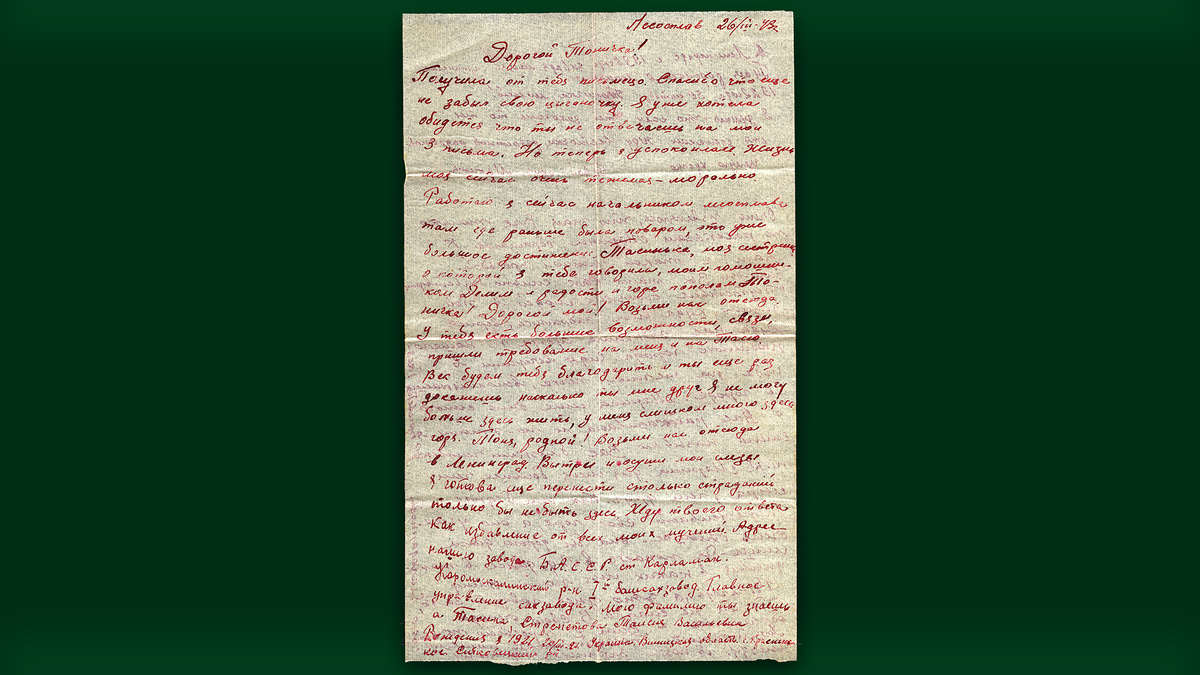 Лесосплав 26/III-43
Дорогой Тоничка!
Получила от тебя письмецо. Спасибо что еще
не забыл свою цыганочку. Я уже хотела
обидется что ты не отвечаешь на мои
3 письма. Но теперь я успокоилась. Жизнь
моя сейчас очень тяжелая - морально
Работаю я сейчас начальником лесосплава
там где раньше была поваром, это уже
большое достижение. Тасинька, моя сестрица
о которой я тебе говорила, моим помощни-
ком. Делим и радости и горе пополам То-
ничка! Дорогой мой! Возьми нас отсюда.
У тебя есть большие возможности, связи,
пришли требование на меня и на Тасю.
Век будем тебя благодарить и ты еще раз
докажешь насколько ты мне друг. Я не могу
больше здесь жить, у меня слишком много здесь
горя. Тоня, родной! Возьми нас отсюда
в Ленинград. Вытри и осуши мои слезы
Я готова еще перенести столько страданий
только бы не быть здесь Жду твоего ответа
Как избавление от всех моих мучений. Адрес
нашего завода. Б.А.С.С.Р ст Карламан.
р-н I-й башсахзавод. Главное
управление сахзавода. Мою фамилию ты знаешь
а Тасина - Таисия Васильевна
Рождения я 1921 Украина. Винницкая область